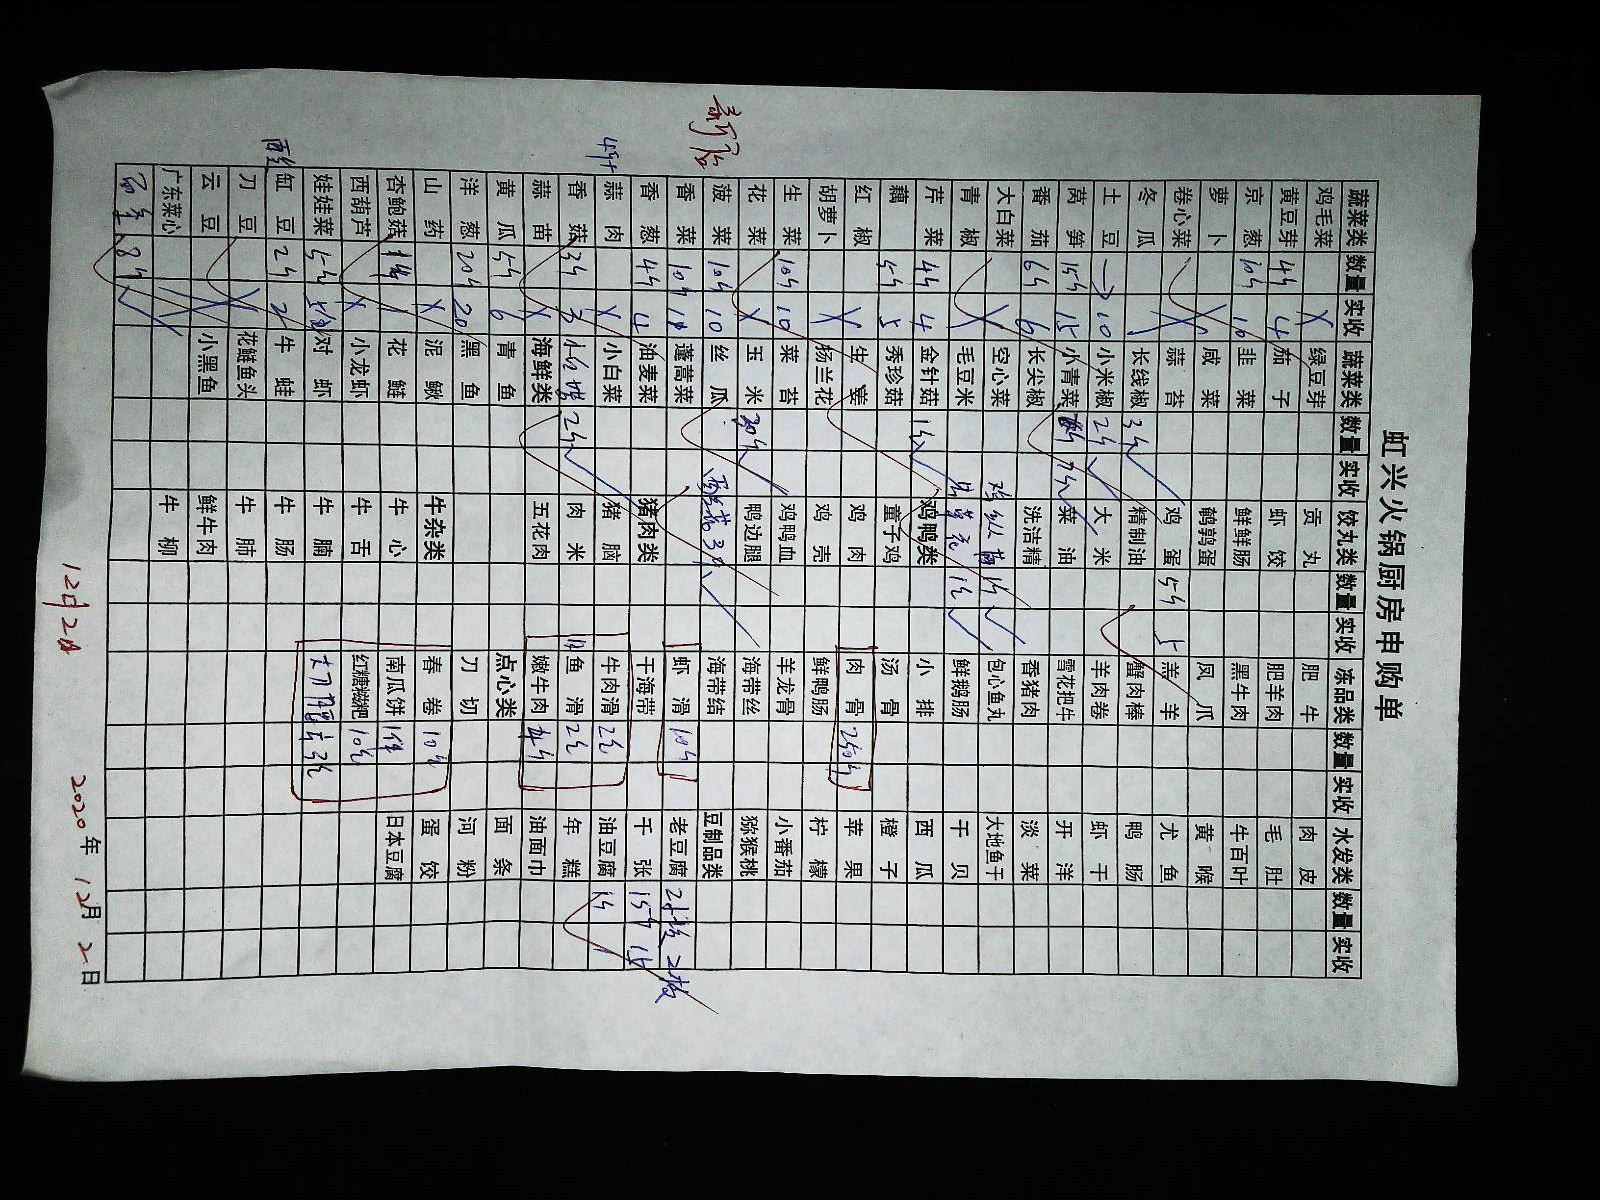 虹兴火锅厨房申购单
新店
蔬菜类 数量 实收 蔬菜类 数量 实收 饺丸类 数量 实收 冻品类 数量 实收 水发类 数量 实收
鸡毛菜 绿豆芽 贡丸 肥牛 肉皮
黄豆芽 4斤 4 茄子 虾饺 肥羊肉 毛肚
京葱 10斤 10 韭菜 鲜鲜肠 黑牛肉 牛百叶
萝卜 咸菜 鹌鹑蛋 凤爪 黄喉
卷心菜 蒜苔 鸡蛋 5斤 5 羔羊 尤鱼
冬瓜 长线椒 3斤 精制油 蟹肉棒 鸭肠
土豆 10 小米椒 2斤 大米 羊肉卷 虾干
莴笋 15斤 15 小青菜 7斤 菜油 雪花把牛 开洋
番茄 6斤 6 长尖椒 洗洁精 香猪肉 淡菜
大白菜 空心菜 包心鱼丸 大地鱼干
青椒 毛豆米 鲜鹅肠 干贝
芹菜 4斤 4 金针菇 鸡鸭类 小排 西瓜
藕 5斤 5 秀珍菇 童子鸡 汤骨 橙子
红椒 生姜 鸡肉 肉骨 苹果
胡萝卜 杨兰花 鸡壳 鲜鸭肠 柠檬
生菜 10斤 10 菜苔 鸡鸭血 羊龙骨 小番茄
花菜 玉米 鸭边腿 海带丝 猕猴桃
菠菜 10斤 10 丝瓜 海带结 豆制品类
香菜 10斤 蓬蒿菜 虾滑 10斤 老豆腐
香葱 4斤 4 油麦菜 猪肉类 干海带 千张 15斤
蒜肉 小白菜 猪脑 牛肉滑 油豆腐 1斤
香菇 3斤 3 肉米 鱼滑 年糕
蒜苗 海鲜类 五花肉 嫩牛肉 油面巾
黄瓜 5斤 6 青鱼 点心类 面条
洋葱 20斤 20 黑鱼 刀切 河粉
山药 泥鳅 牛杂类 春卷 蛋饺
杏鲍菇 花鲢 牛心 南瓜饼 1件 日本豆腐
西葫芦 小龙虾 牛舌 红糖糍粑
娃娃菜 5斤 对虾 牛腩
缸豆 2斤 牛蛙 牛肠
刀豆 花鲢鱼头 牛肺
云豆 小黑鱼 鲜牛肉
广东菜心 牛柳
8斤
12月2日 2020年12月2日